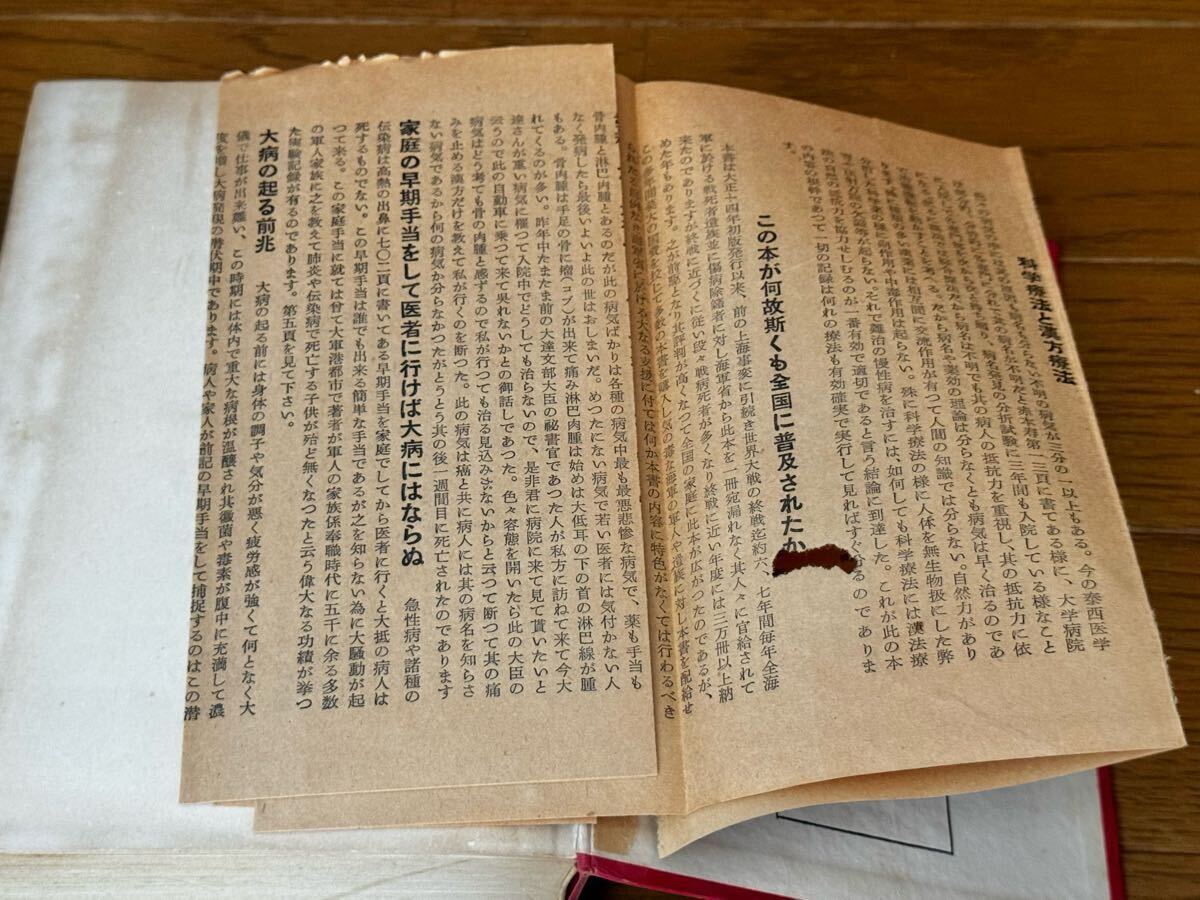 科学療法と漢方療法
不明の病気が三分の一以上もある。今の泰西医学
第一三頁に書てある様に、大学病院
病名発見の分析試験に三年間も入院している様なこと
病名は不明でも其の病人の抵抗力を重視し、其の抵抗力に依
だから病名や薬効の理論は分らなくとも病気は早く治るのであ
相互間に交流作用が有つて人間の知識では分らない。自然力があり
副作用や中毒作用は起らない。殊に科学療法の様に人体を無生物扱にした弊
が起らない。それで難治の慢性病を治すには、如何しても科学療法には漢法療
協力せしむるのが一番有効で適切であると言う結論に到達した。これが此の本
の内容の根幹であつて一切の記録は何れの療法も有効確実で実行して見ればすぐ分るのでありま
す。
この本が何故斯くも全国に普及されたか
本書は大正十四年初版発行以来、前の上海事変に引続き世界大戦の終戦迄約六、七年間毎年全海
軍に於ける戦死者遺族並に傷病除籍者に対し海軍省から此本を一冊宛漏れなく其人々に官給されて
来たのでありますが終戦に近づくに従い段々戦病死者が多くなり終戦に近い年度には三万冊以上納
めた年もあります。之が前駆となり其評判が高くなつて全国の家庭に此本が広がつたのであるが、
この多年間莫大の国費を投じて多数の本書を購入し気の毒な海軍の軍人や遺族に対し本書を配給せ
付ては何か本書の内容に特色がなくては行わるべき
骨肉腫と淋巴肉腫とあるのだが此の病気ばかりは各種の病気中も最悪悲惨な病気で、薬も手当も
なく発病したら最後いよいよ此の世はおしまいだ。めつたにない病気で若い医者には気付かない人
もある。骨肉腫は手足の骨に瘤(コブ)が出来て痛み淋巴肉腫は始めは大低耳の下の首の淋巴線が腫
れてくるのが多い。昨年中たまたま前の大達文部大臣の秘書官であつた人が私方に訪ねて来て今大
達さんが重い病気に罹つて入院中でどうしても治らないので、是非君に病院に来て見て貰いたいと
云うので此の自動車に乗つて来て呉れないかとの御話しであつた。色々容態を聞いたら此の大臣の
病気はどう考ても骨の肉腫と感ずるので私が行つても治る見込みがないからと云つて断つて其の痛
みを止める漢方だけを教えて私が行くのを断つた。此の病気は癌と共に病人には其の病名を知らさ
ない病気であるから何の病気か分らなかつたがとうとう其の後一週間目に死亡されたのであります
家庭の早期手当をして医者に行けば大病にはならぬ 急性病や諸種の
伝染病は高熱の出鼻に七〇二頁に書いてある早期手当を家庭でしてから医者に行くと大抵の病人は
死するものでない。この早期手当は誰でも出来る簡単な手当であるが之を知らない為に大騒動が起
つて来る。この家庭手当に就ては曾て大軍港都市で著者が軍人の家族係奉職時代に五千に余る多数
の軍人家族に之を教えて肺炎や伝染病で死亡する子供が殆ど無くなつたと云う偉大なる功績が挙つ
た実験記録が有るのであります。第五頁を見て下さい。
大病の起る前兆 大病の起る前には身体の調子や気分が悪く疲労感が強くて何となく大
儀で仕事が出来難い、この時期には体内で重大な病根が温醸され其黴菌や毒素が腹中に充満して濃
度を増し大病発現の潜伏期中であります。病人や家人が前記の早期手当をして捕捉するのはこの潜